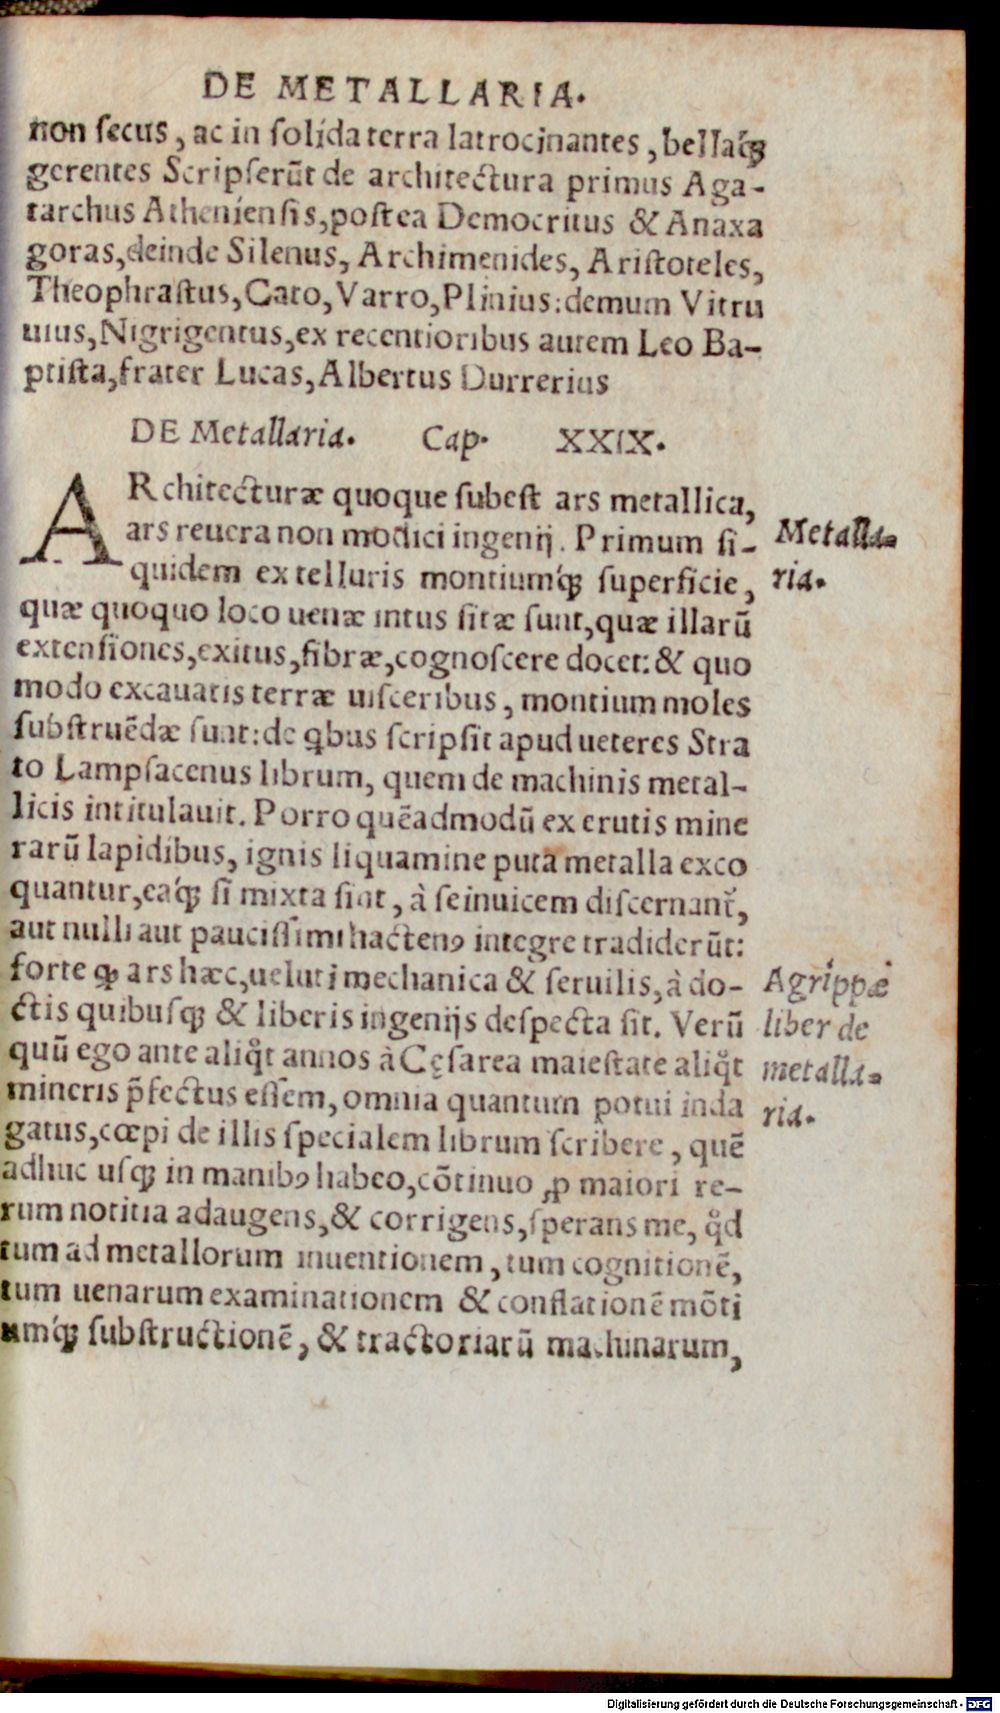 DE METALLARIA.
non secus, ac in solida terra latrocinantes, bellaq́ꝫ
gerentes Scripserũt de architectura primus Aga-
tarchus Atheniensis, postea Democritus & Anaxa
goras, deinde Silenus, Archimenides, Aristoteles,
Theophrastus, Cato, Varro, Plinius: demum Vitru
uius, Nigrigentus, ex recentioribus autem Leo Ba-
ptista, frater Lucas, Albertus Durrerius
DE Metallaria. Cap. XXIX.
ARchitecturæ quoque subest ars metallica,
ars reuera non modici ingenij. Primum si-
quidem ex telluris montiumq́ꝫ superficie,
quæ quoquo loco uenæ intus sitæ sunt, quæ illarũ
extensiones, exitus, fibræ, cognoscere docet: & quo
modo excauatis terræ uisceribus, montium moles
substruẽdæ sunt: de qbus scripsit apud ueteres Stra
to Lampsacenus librum, quem de machinis metal-
licis intitulauit. Porro quẽadmodũ ex erutis mine
rarũ lapidibus, ignis liquamine puta metalla exco
quantur, eaq́ꝫ si mixta sint, à seinuicem discernant᷑,
aut nulli aut paucissimi hacten⁹ integre tradiderũt:
forte ꝙ ars hæc, ueluti mechanica & seruilis, à do-
ctis quibusqꝫ & liberis ingenijs despecta sit. Verũ
quũ ego ante aliqͦt annos à Cęsarea maiestate aliqͦt
mineris p̃fectus essem, omnia quantum potui inda
gatus, cœpi de illis specialem librum scribere, quẽ
adhuc usqꝫ in manib⁹ habeo, cõtinuo ꝓ maiori re-
rum notitia adaugens, & corrigens, sperans me, qͦd
tum ad metallorum inuentionem, tum cognitionẽ,
tum uenarum examinationem & conflationẽ mõti
umq́ꝫ substructionẽ, & tractoriarũ machinarum,
Metalla-
ria.
Agrippæ
liber de
metalla-
ria.
Digitalisierung gefördert durch die Deutsche Forschungsgemeinschaft - DFG